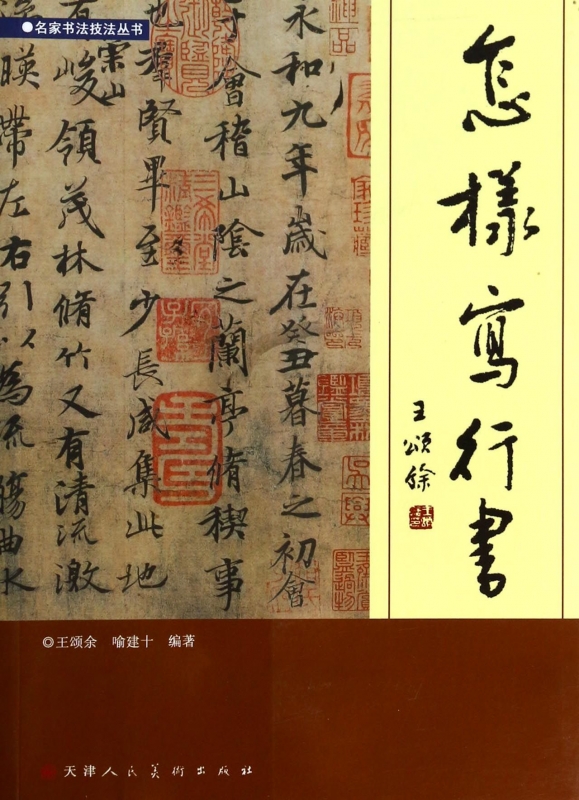 ●名家书法技法丛书
怎樣寫行書
王頌餘
永和九年歲在癸丑暮春之初會
于會稽山陰之蘭亭脩稧事
也羣賢畢至少長咸集此地
有崇山峻領茂林脩竹又有清流激
暎帶左右引以為流觴曲水
◎王颂余 喻建十 编著
天津人民美術出版社